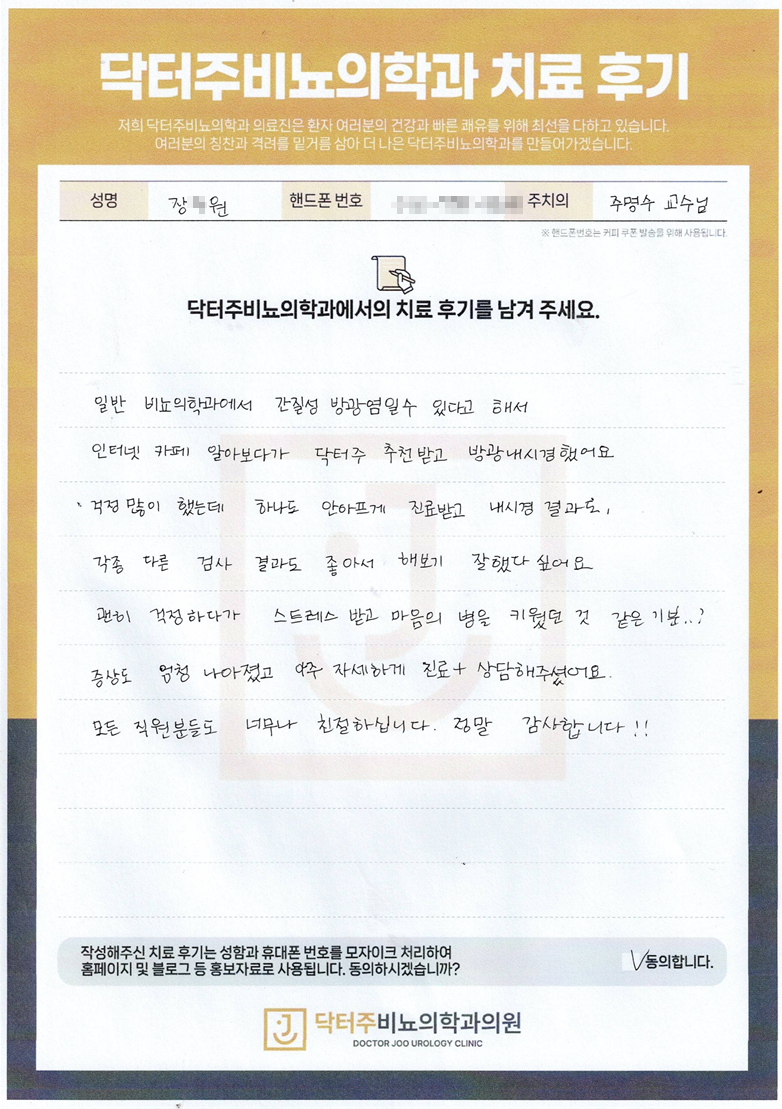 닥터주비뇨의학과 치료 후기
저희 닥터주비뇨의학과 의료진은 환자 여러분의 건강과 빠른 쾌유를 위해 최선을 다하고 있습니다.
여러분의 칭찬과 격려를 밑거름 삼아 더 나은 닥터주비뇨의학과를 만들어가겠습니다.
성명 장 원 핸드폰 번호 주치의 주명수 교수님
※ 핸드폰번호는 커피 쿠폰 발송을 위해 사용됩니다.
닥터주비뇨의학과에서의 치료 후기를 남겨 주세요.
일반 비뇨의학과에서 간질성 방광염일수 있다고 해서
인터넷 카페 알아보다가 닥터주 추천받고 방광내시경했어요
걱정 많이 했는데 하나도 안아프게 진료받고 내시경 결과도,
각종 다른 검사 결과도 좋아서 해보기 잘했다 싶어요
괜히 걱정하다가 스트레스 받고 마음의 병을 키웠던 것 같은 기분..?
증상도 엄청 나아졌고 아주 자세하게 진료+ 상담해주셨어요.
모든 직원분들도 너무나 친절하십니다. 정말 감사합니다!!
작성해주신 치료 후기는 성함과 휴대폰 번호를 모자이크 처리하여
홈페이지 및 블로그 등 홍보자료로 사용됩니다. 동의하시겠습니까?
√동의합니다.
닥터주비뇨의학과의원
DOCTOR JOO UROLOGY CLINIC